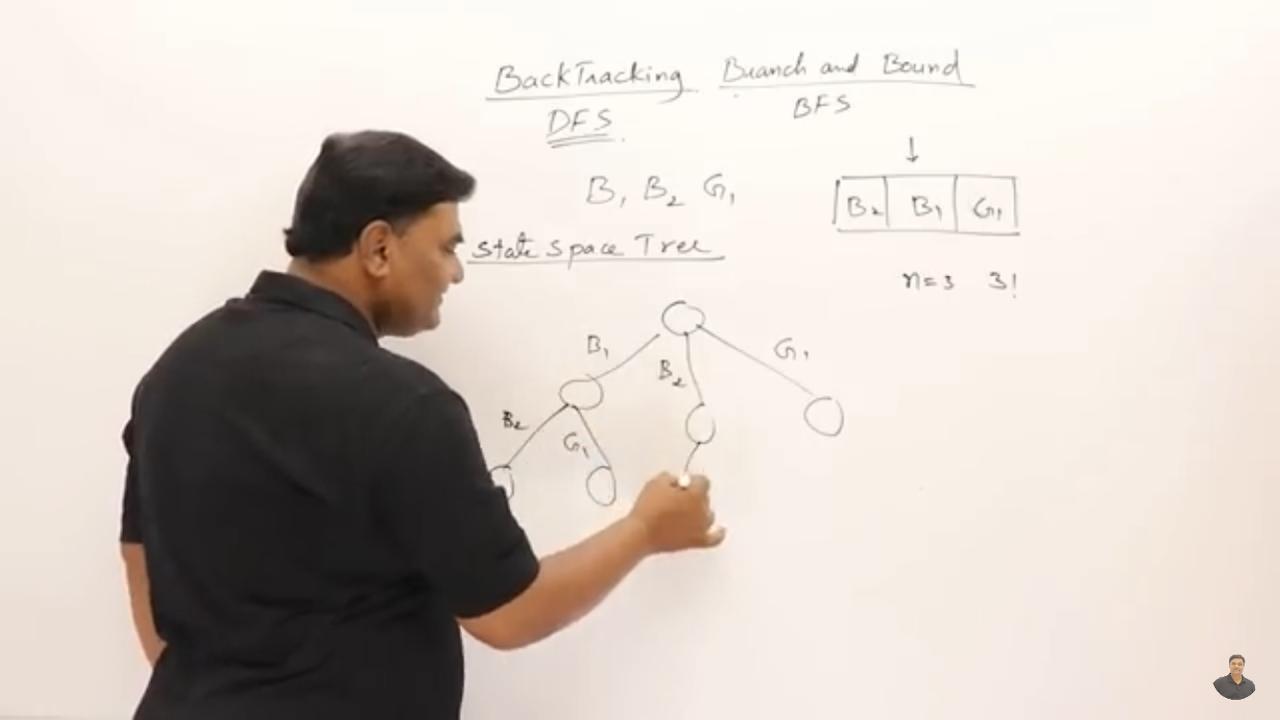 BackTracking Branch and Bound
DFS BFS
↓
B₁ B₂ G₁
B₂ B₁ G₁
State Space Tree
n=3 3!
B₁ B₂ G₁
B₂ G₁